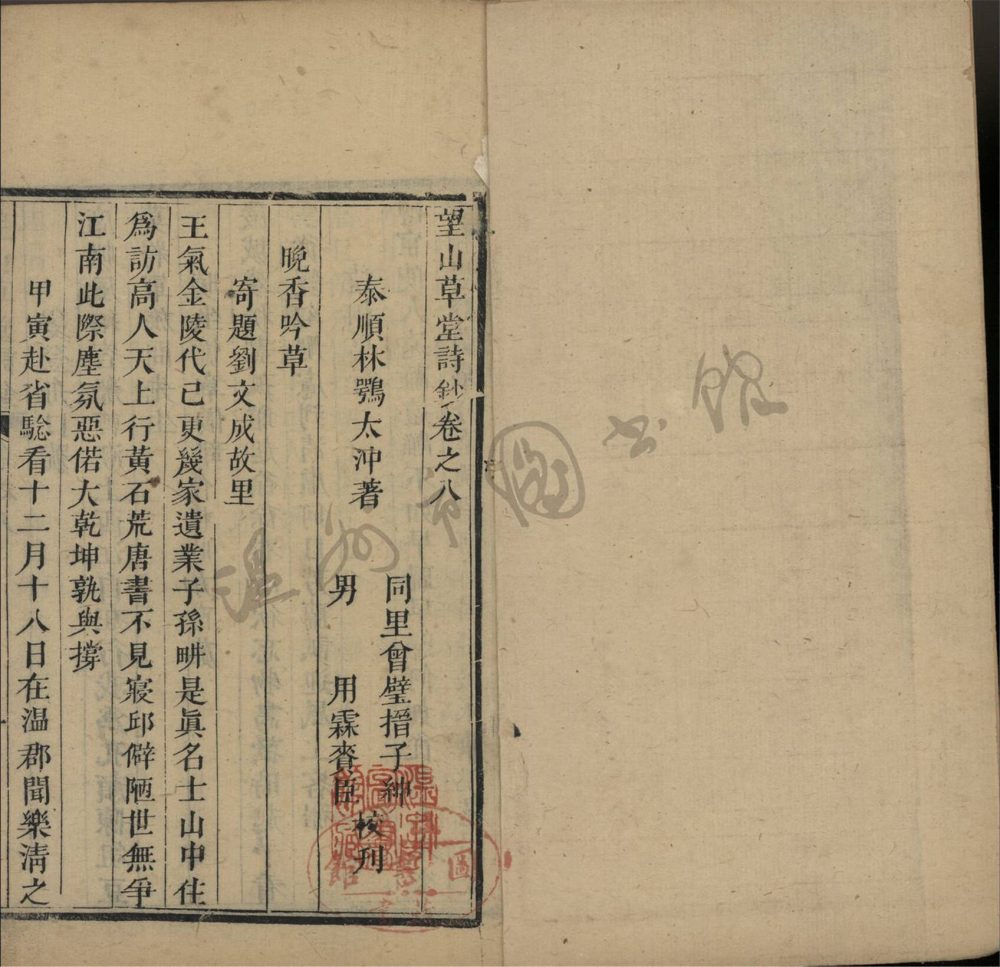 望山草堂詩鈔卷之八
泰順林鶚太沖著
同里曾璧搢子紳
男 用霖賚臣 校刋
晩香吟草
寄題劉文成故里
王氣金陵代已更幾家遺業子孫畊是眞名士山中住
爲訪高人天上行黃石荒唐書不見寢邱僻陋世無爭
江南此際塵氛惡偌大乾坤孰與撐
甲寅赴省驗看十二月十八日在温郡聞樂淸之
温州市圖書館